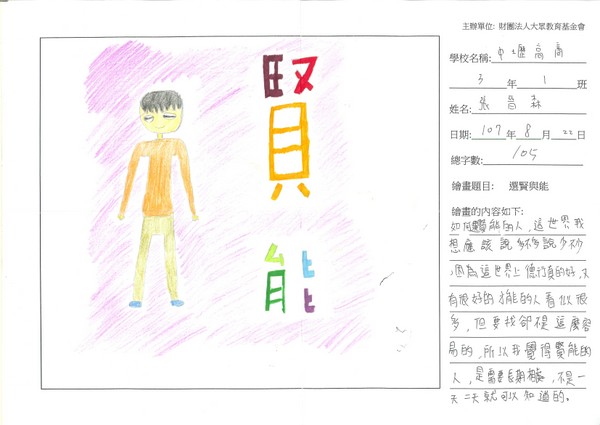 主辦單位: 財團法人大眾教育基金會
學校名稱: 中壢高商
3 年 1 班
姓名: 張晉森
日期: 107 年 8 月 22 日
總字數: 105
繪畫題目: 選賢與能
繪畫的內容如下:
如何賢能的人,這世界我
想應該說多不多說少不少
,因為這世界上德行真的好,又
有很好的才能的人看似很
多,但要找卻不是這麼容
易的,所以我覺得賢能的
人,是需要長期相處,不是一
天二天就可以知道的。
賢
能